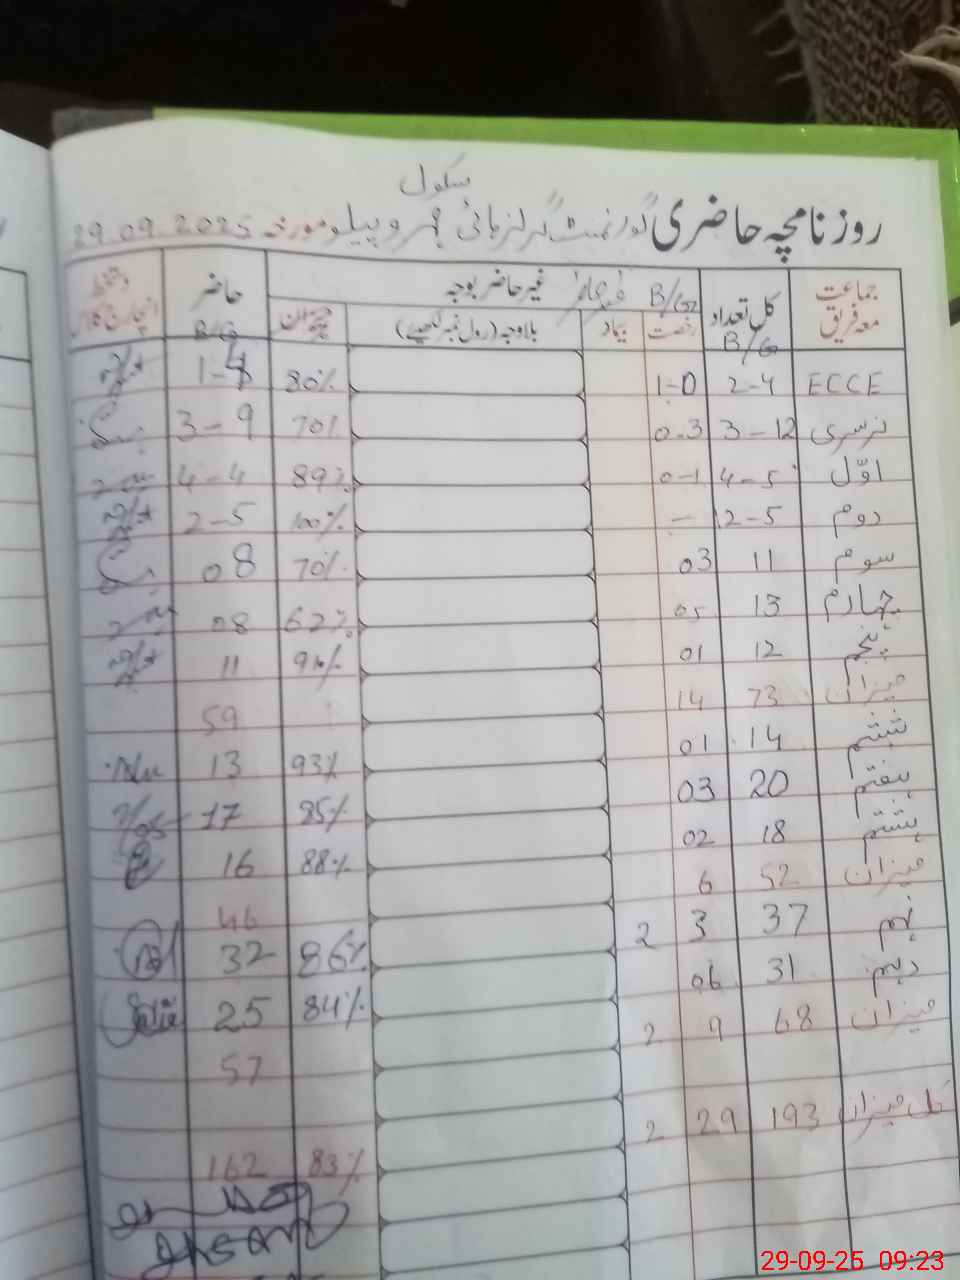 سکول
روزنامچہ حاضری گورنمنٹ گرلز ہائی مہرو پیلو مورخہ 29.09.2025
جماعت معہ فریق کل تعداد B/G B/G غیر حاضر بوجہ حاضر B/G دستخط انچارج کلاس
رخصت بیمار بلاوجہ (رول نمبر لکھیے)
ECCE 2-4 1-0 80% 1-4
نرسری 3-12 0-3 70% 3-9
اوّل 4-5 0-1 89% 4-4
دوم 2-5 - 100% 2-5
سوم 11 03 70% 08
چہارم 13 05 62% 08
پنجم 12 01 91% 11
میزان 73 14 59
ششم 14 01 93% 13
ہفتم 20 03 85% 17
ہشتم 18 02 88% 16
میزان 52 6 46
نہم 37 3 2 86% 32
دہم 31 06 84% 25
میزان 68 9 2 57
کل میزان 193 29 2 83% 162
29-09-25 09:23